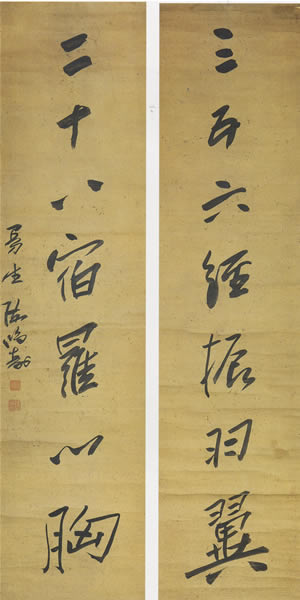 三五六經振羽翼
二十八宿羅心胸
陳鴻壽